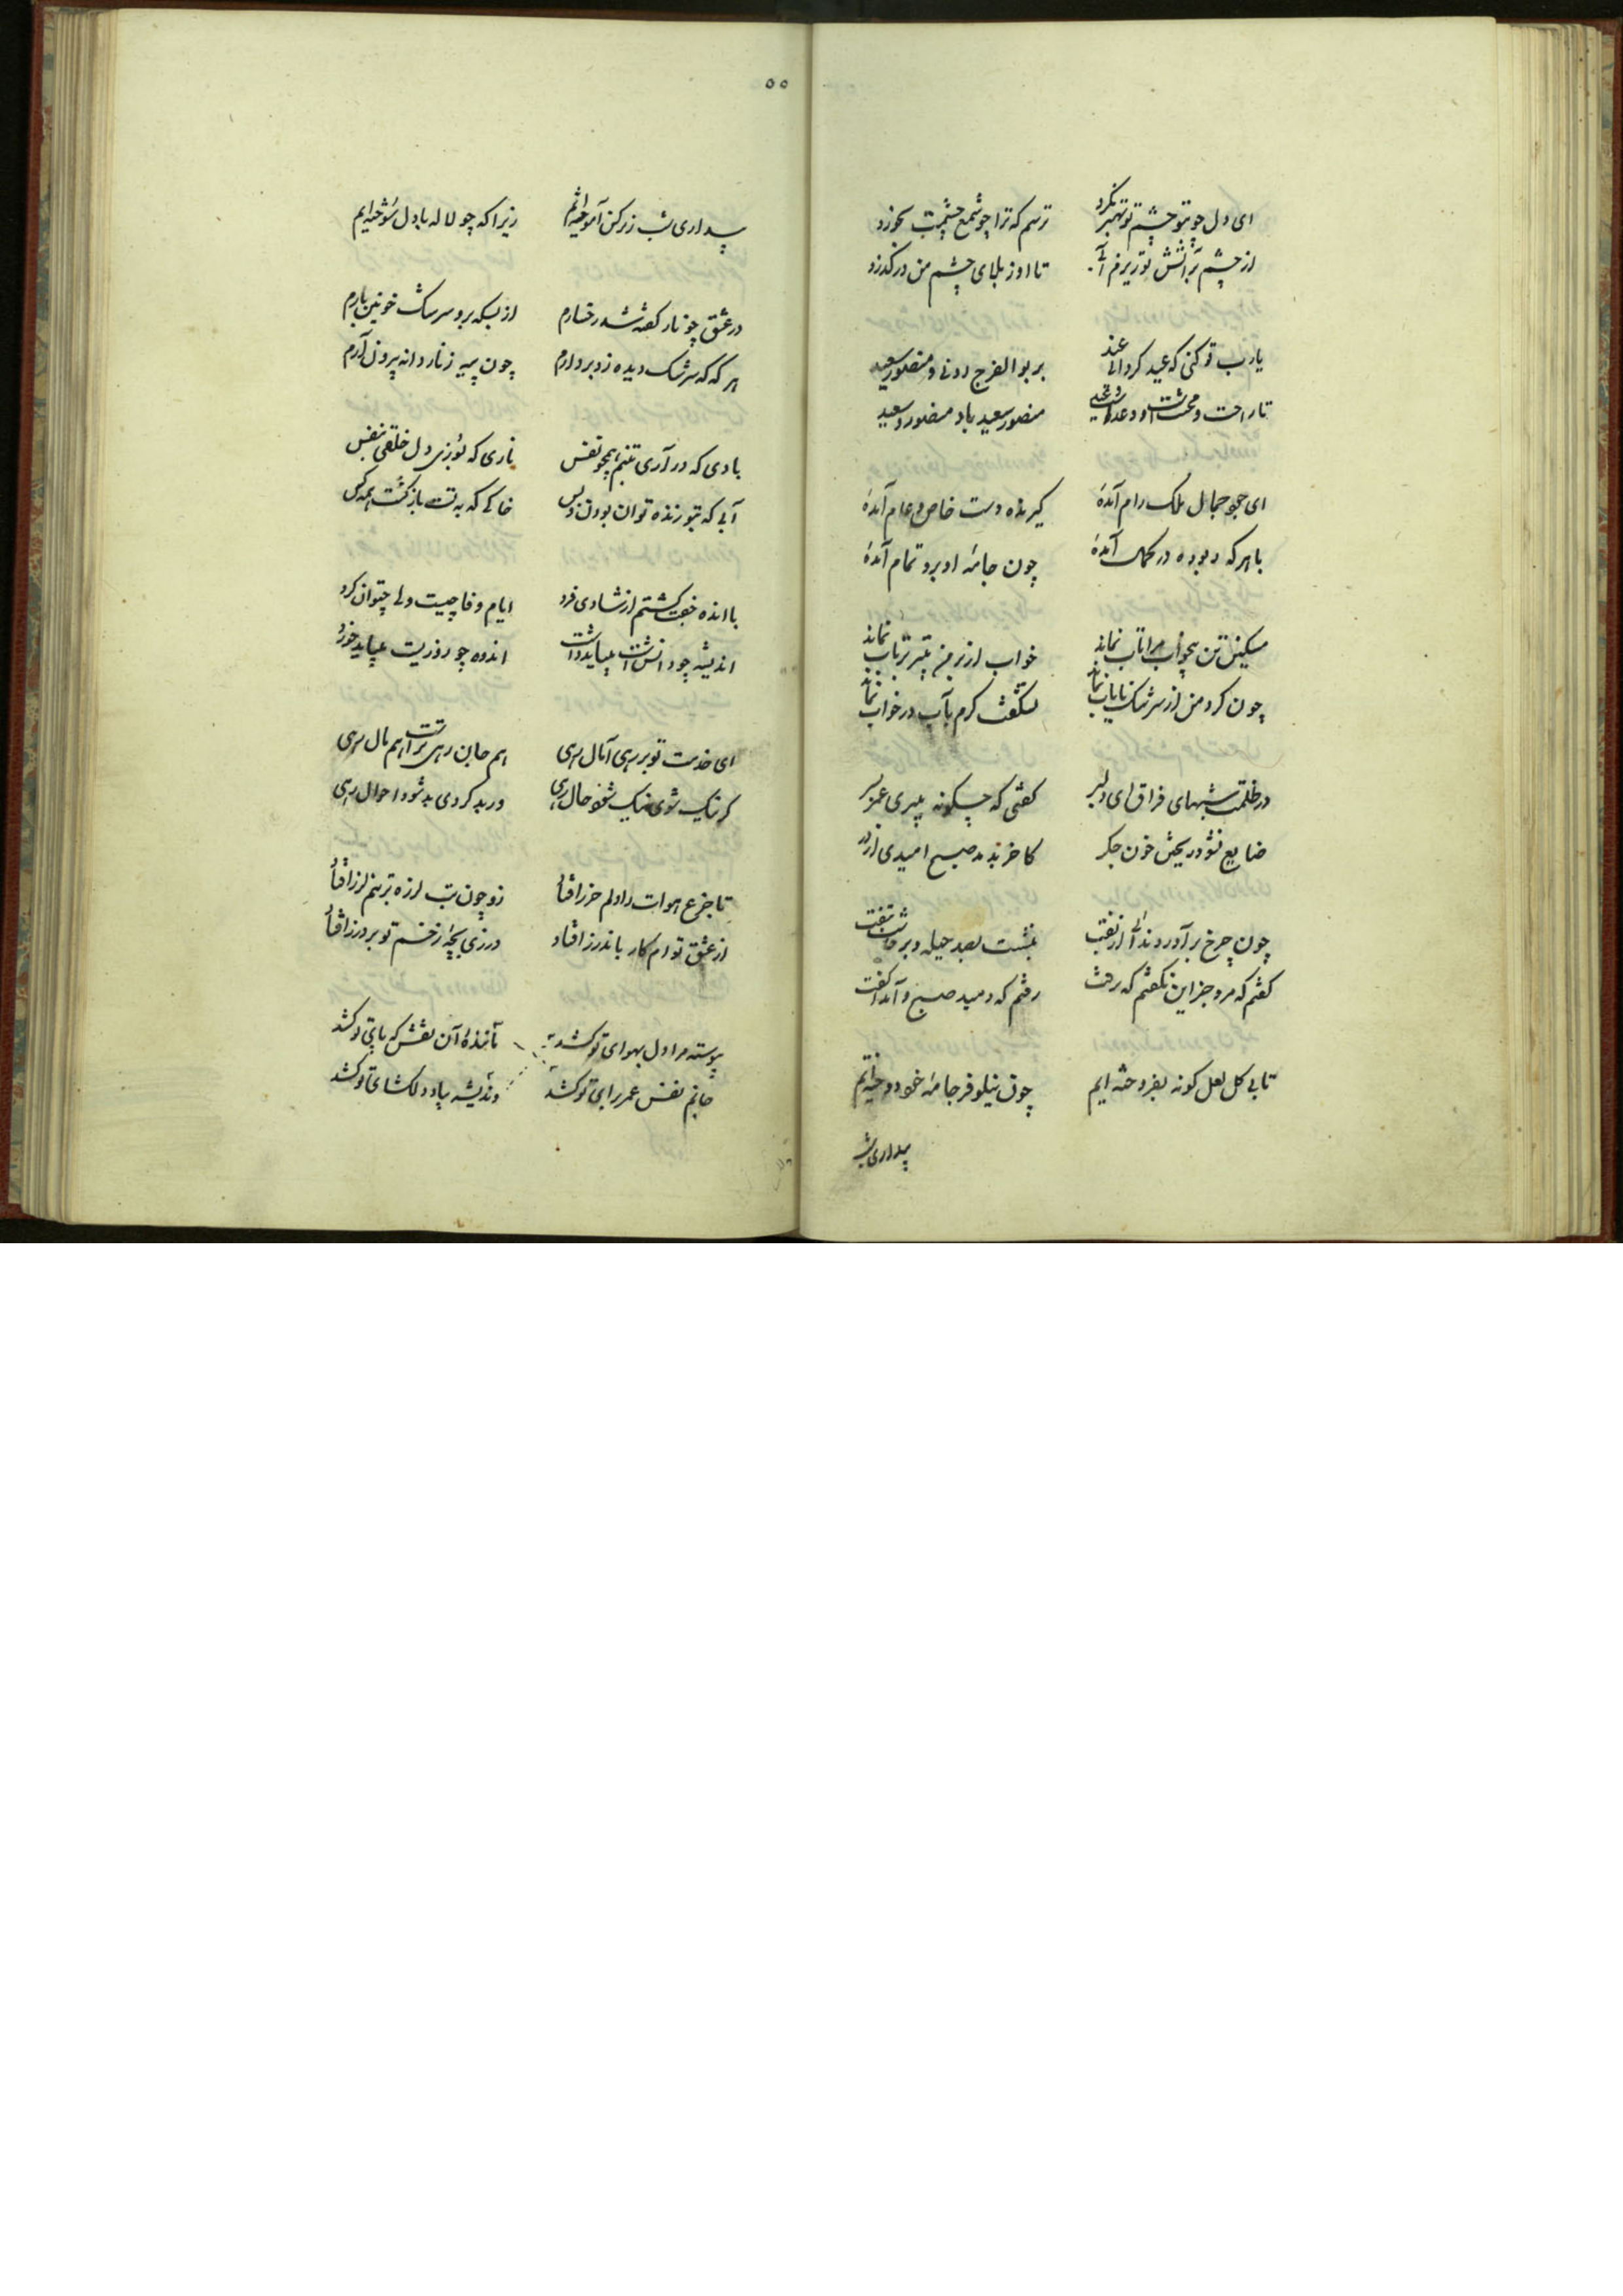 ای دل چو تو چشم تو بتهمبر نکرد ترسم که ترا چو شمع چشمت بخورد
از چشم بر آتش تو ریزم آبی تا او ز بلای چشم من درگذرد
یارب تو کنی که عید کردانی عید بر بوالفرج رونی و منصور سعید
تا راحت و محنتست و وعدست و وعید منصور سعید باد منصور و سعید
ای همچو جمال ملک رام آمدهٔ گیرنده دست خاص و عام آمدهٔ
با هر که در آمدهٔ چون جامه او برو تمام آمدهٔ
مسکین تن همچو مرا تاب نماند خواب از بر من نماند
چون کرد من از سرشک نایاب نماند نشگفت گرم بآب در خواب نماند
در ظلمت شبهای فراق ای دلبر گفتی که چگونه میبری عمر بسر
ضایع نشود ریختن خون جگر کاخر بدمد صبح امیدی از در
چون چرخ برآورد ندائی از نهفت بنشست بصد حیله و برخاست بتفت
گفتم که مرو جز این نگفتم که برفت رفتم که دمید صبح و آمد گفت
تا بی گل لعل گونه بفروخته ایم چون نیلوفر جامه خود دوخته ایم
بیداری شب
۵۵
بیداری شب ز نرگس آموخته ایم زیرا که چو لاله با دل سوخته ایم
در عشق چو نار کفته شد رخسارم از بسکه برو سرشک خونین بارم
هر گه که سرشک دیده زو بردارم چون پیه ز نار دانه بیرون آرم
بادی که در آری بتنم همچو نفس ناری که بسوزی دل خلقی بنفس
آبی که بتو زنده توان بودن و بس خاکی که به تست بازگشت همه کس
با انده جفت گشتم از شادی فرد ایام وفا چیست ولی چتوان کرد
اندیشه چو دانش است میباید داشت اندوه چو روزیست میباید خورد
ای خدمت تو بر رهی آمال رهی هم جان رهی تراست هم مال رهی
گر نیک شوی نیک شود حال رهی ور بد گردی بد شود احوال رهی
تا جزع هوات را دلم خرز افتاد زو چون تب لرزه بر تنم لرز افتاد
از عشق توام کار باندرز افتاد درزی بچهٔ زخم تو بر درز افتاد
پیوسته مرا دل بهوای تو کشد تا آن نقش که با پای تو کشد
جانم نفس عمر برای تو کشد وندیشه بیاد دلگشای تو کشد